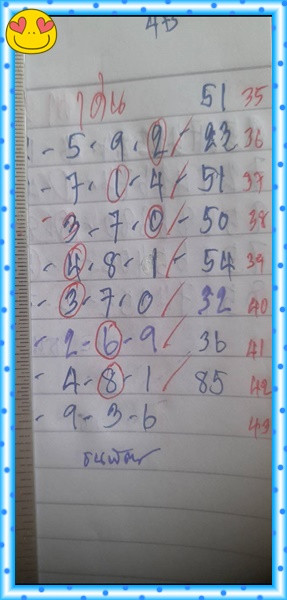 เด่น 51 35
- 5 - 9 - 2 / 22 36
- 7 - 1 - 4 / 51 37
- 3 - 7 - 0 / 50 38
- 4 - 8 - 1 / 54 39
- 3 - 7 - 0 / 32 40
- 2 - 6 - 9 / 36 41
- 4 - 8 - 1 / 85 42
- 9 - 3 - 6 43